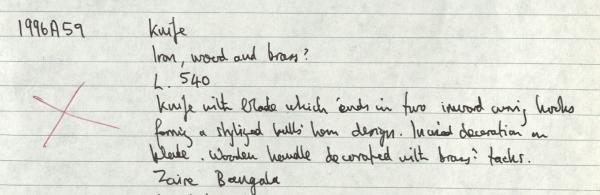 1996A59 Knife
Iron, wood and brass?
L. 540
Knife with blade which ends in two inward curving hooks
forming a stylized bulls horn design. Incised decoration on
blade. Wooden handle decorated with brass? tacks.
Zaire Bangala